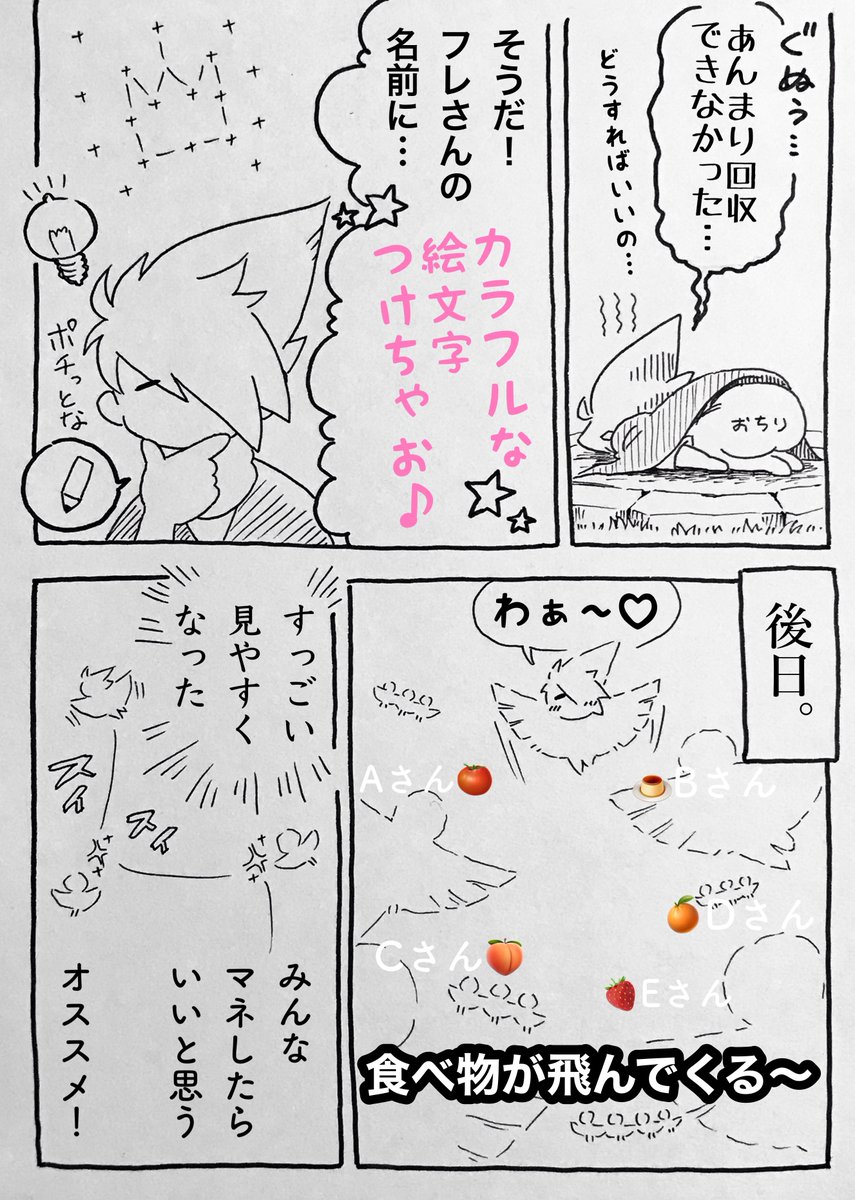 ぐぬぅ…
あんまり回収
できなかった…
どうすればいいの…
おちり
そうだ！
フレさんの
名前に…
カラフルな
絵文字
つけちゃお♪
ポチっとな
後日。
わぁ～♡
Aさん🍅
🍮Bさん
🍊Dさん
Cさん🍑
🍓Eさん
食べ物が飛んでくる～
すっごい
見やすく
なった
スィ
スィ
みんな
マネしたら
いいと思う
オススメ！